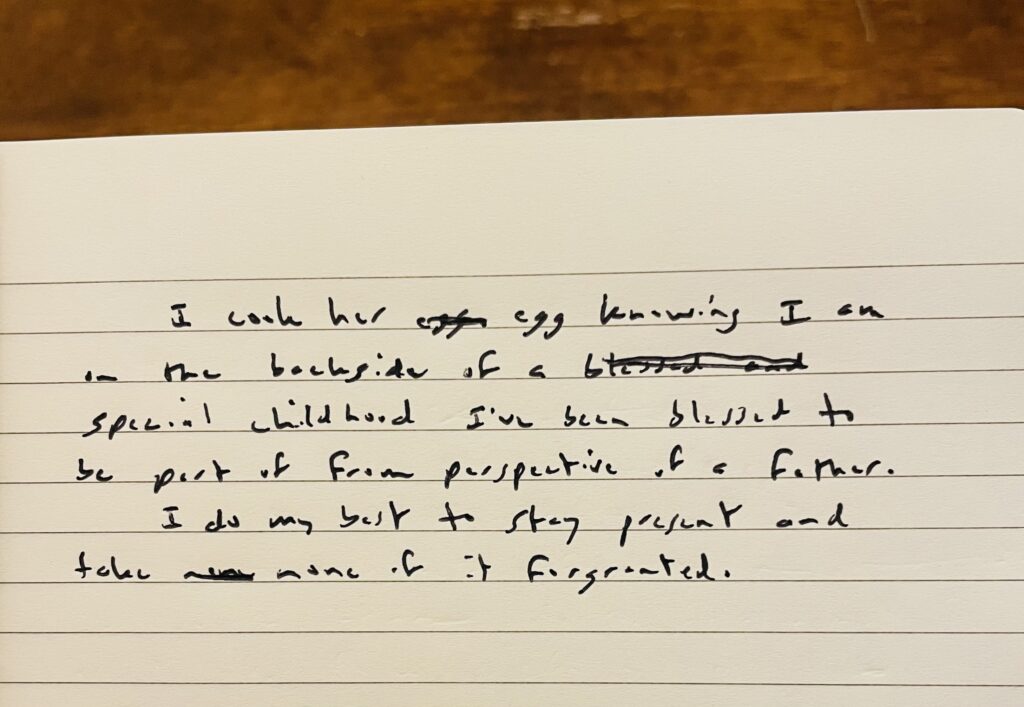 I cook her egg knowing I am
on the backside of a blessed and
special childhood I've been blessed to
be part of from perspective of a father.
I do my best to stay present and
take none of it forgranted.